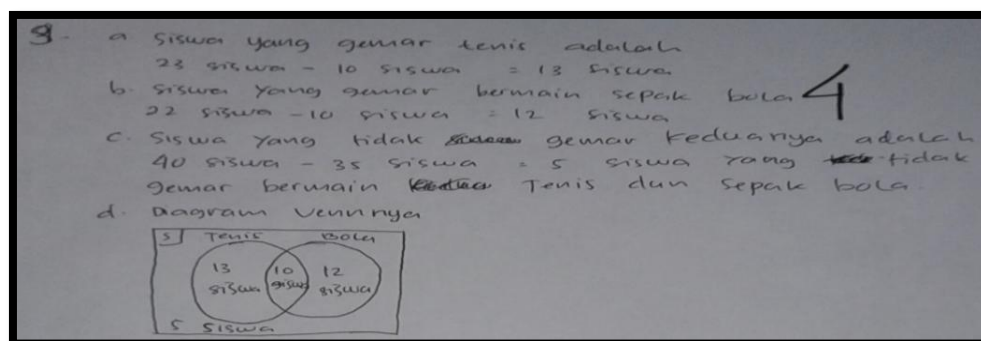 9. a. siswa yang gemar tenis adalah
23 siswa - 10 siswa = 13 siswa
b. siswa yang gemar bermain sepak bola 4
22 siswa - 10 siswa = 12 siswa
c. Siswa yang tidak gemar keduanya adalah
40 siswa - 35 siswa = 5 siswa yang tidak
gemar bermain Tenis dan sepak bola.
d. Diagram Vennnya
S Tenis Bola
13 10 12
siswa siswa siswa
5 siswa